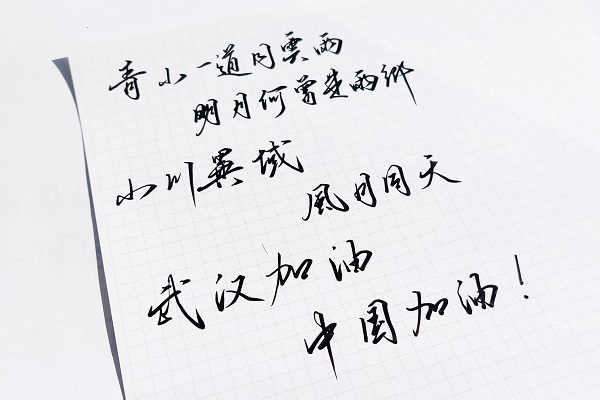 青山一道同雲雨
明月何曾是兩鄉
山川異域
風月同天
武汉加油
中国加油！